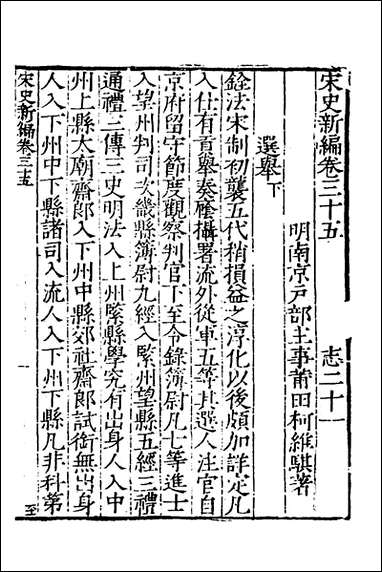 宋史新編卷三十五　志二十一
明南京戸部主事莆田柯維騏著
選舉下
銓法宋制初襲五代稍損益之淳化以後頗加詳定凡
入仕有貢舉奏廕攝署流外從軍五等其選人注官自
京府留守節度觀察判官下至令錄簿尉凡七等進士
入望州判司次畿縣簿尉九經入緊州望縣五經三禮
通禮三傳三史明法入上州緊縣學究有出身人入中
州上縣太廟齋郎入下州中縣郊社齋郎試銜無出身
人入下州中下縣諸司入流人入下州下縣凡非科第
宋史新編卷三五
一
至